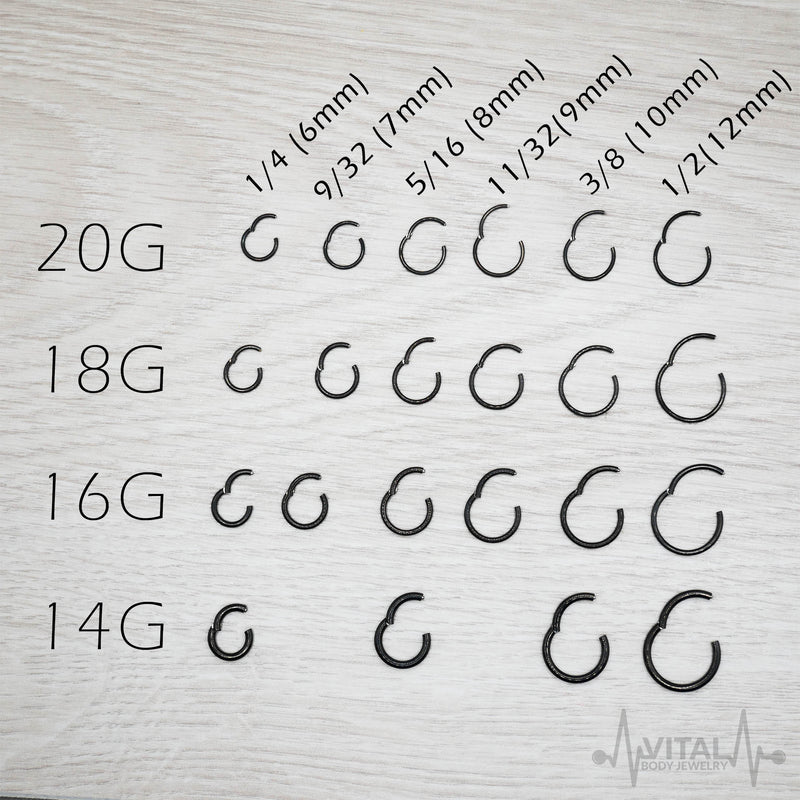 1/4 (6mm)
9/32 (7mm)
5/16 (8mm)
11/32(9mm)
3/8 (10mm)
1/2(12mm)
20G
18G
16G
14G
VITAL
BODY JEWELRY